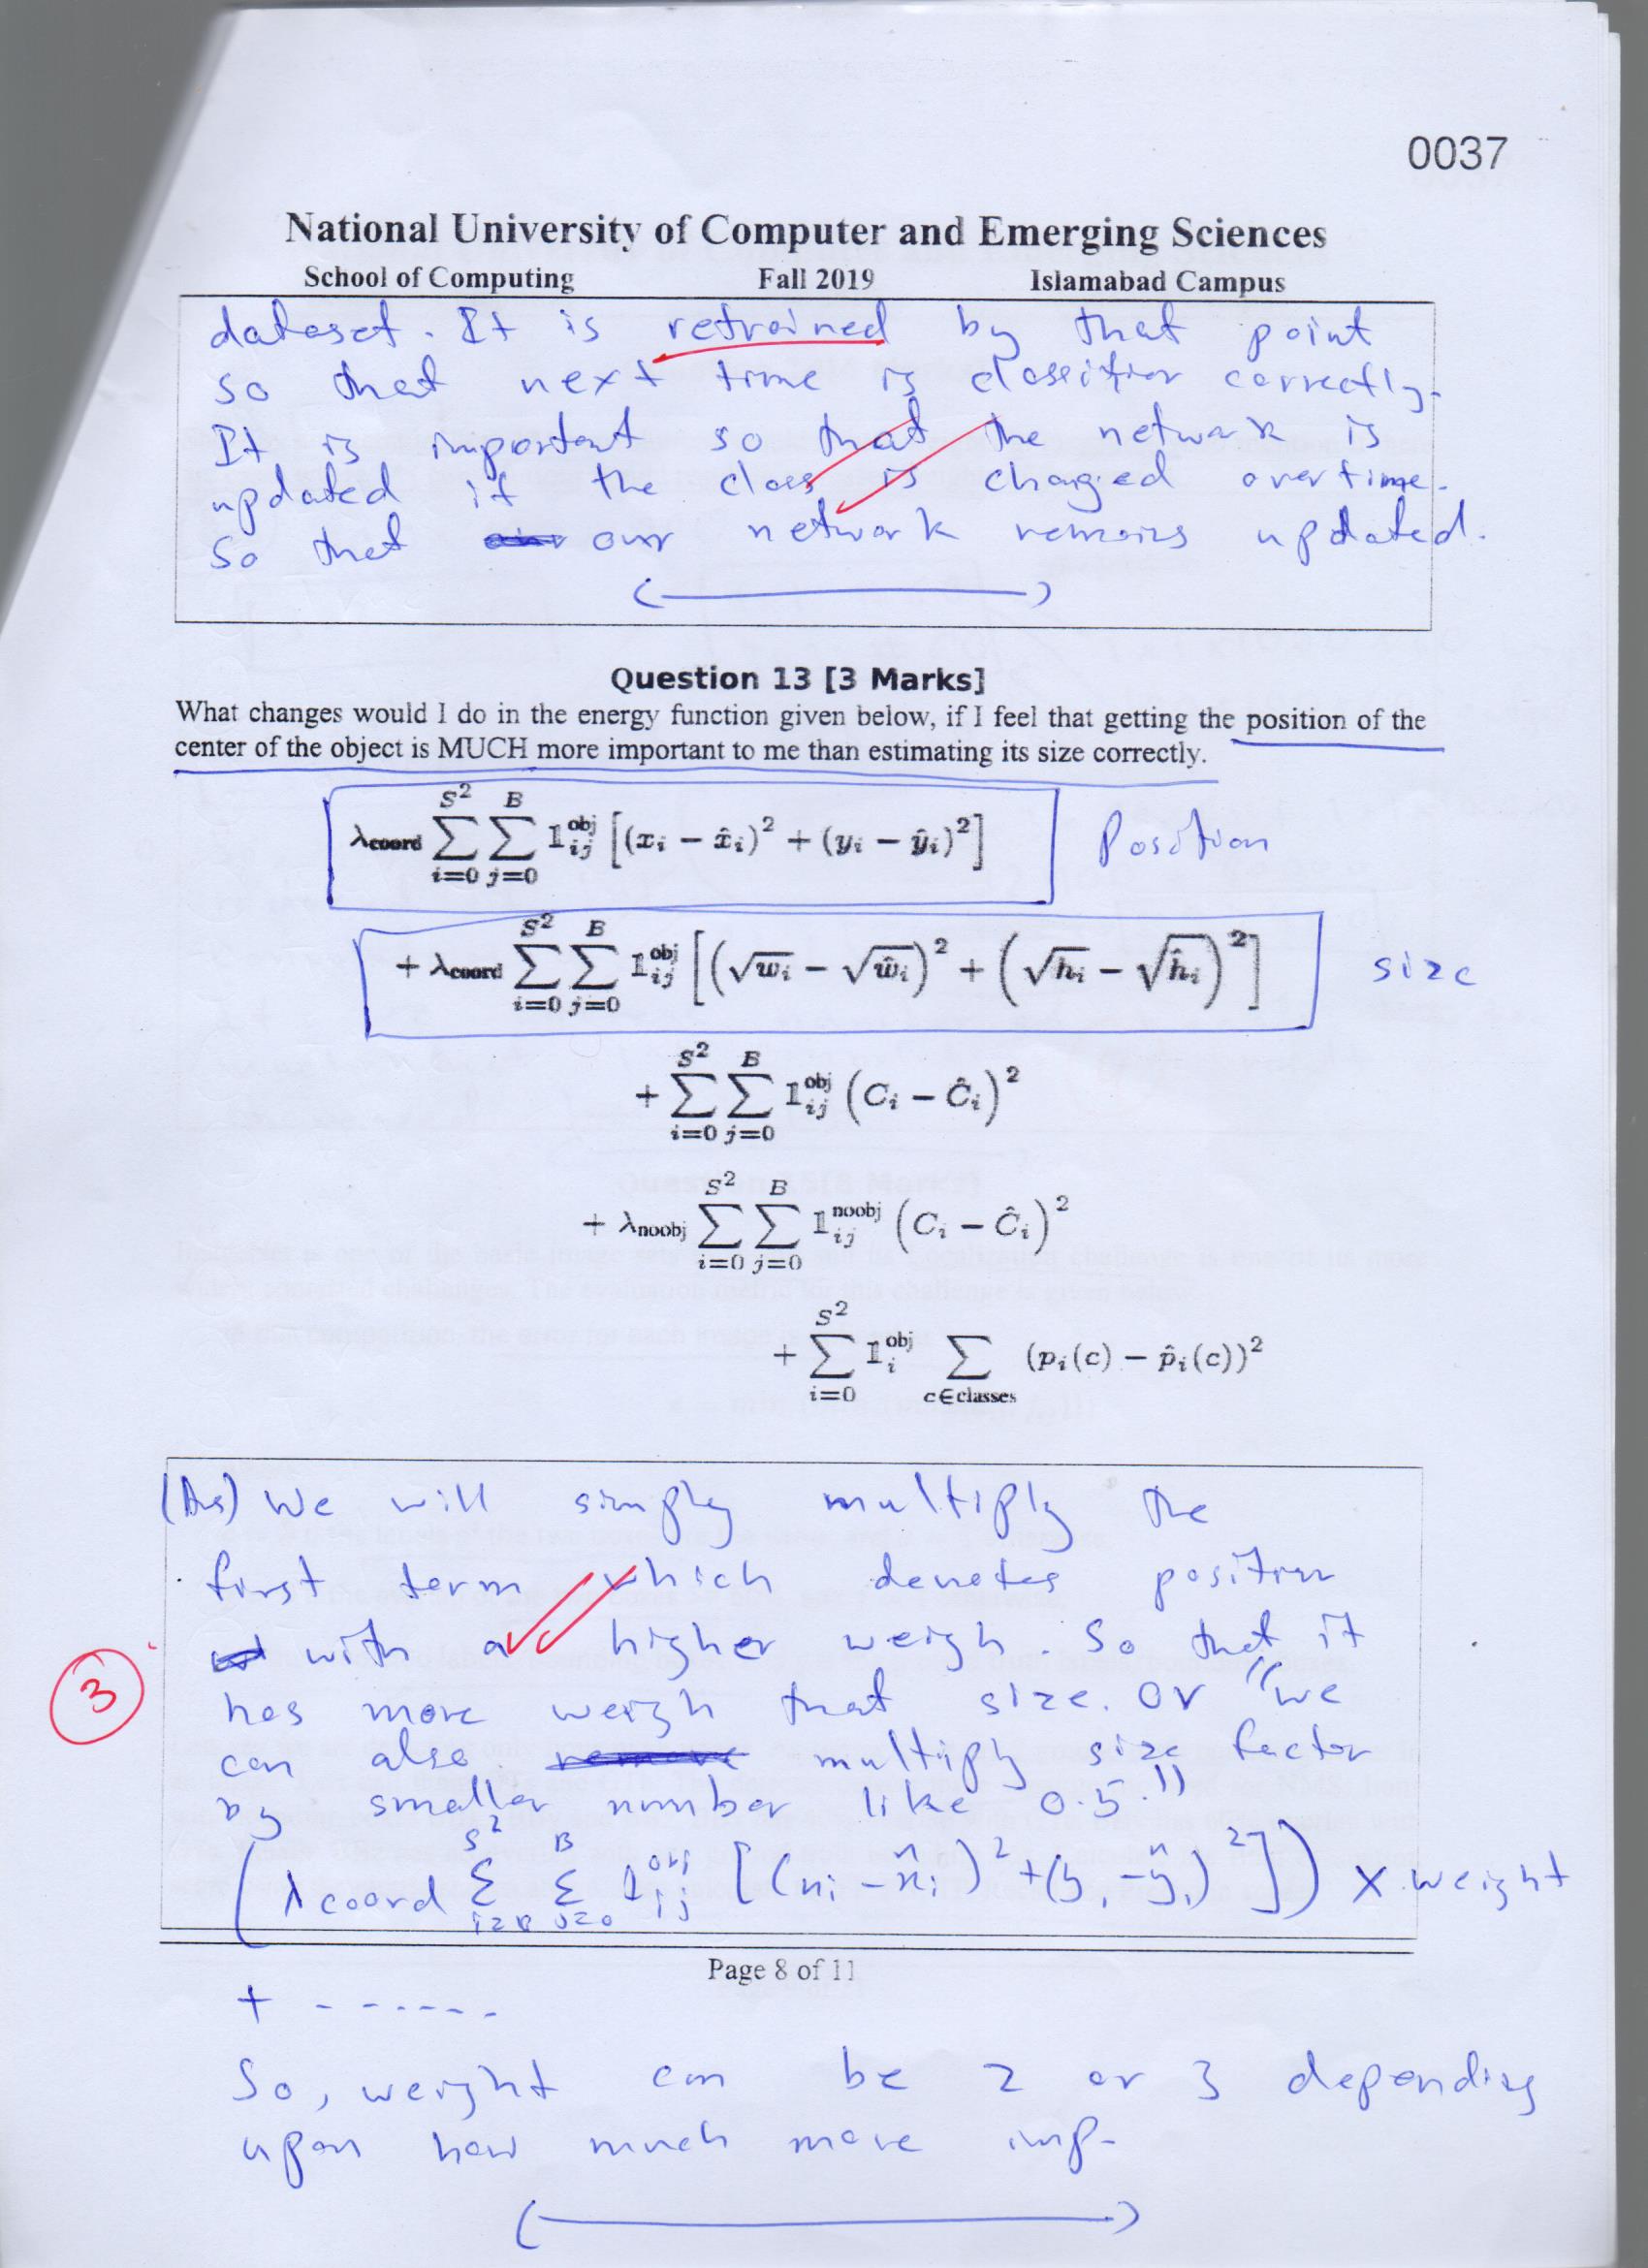 0037
National University of Computer and Emerging Sciences
School of Computing Fall 2019 Islamabad Campus
dataset. It is retrained by that point
so that next time is classifier correctly.
It is important so that the network is
updated if the class is changed overtime.
So that our network remains updated.
Question 13 [3 Marks]
What changes would I do in the energy function given below, if I feel that getting the position of the
center of the object is MUCH more important to me than estimating its size correctly.
λcoord ∑_{i=0}^{S²} ∑_{j=0}^{B} 𝟙_{ij}^{obj} [(x_i − x̂_i)² + (y_i − ŷ_i)²] Position
+ λcoord ∑_{i=0}^{S²} ∑_{j=0}^{B} 𝟙_{ij}^{obj} [(√w_i − √ŵ_i)² + (√h_i − √ĥ_i)²] size
+ ∑_{i=0}^{S²} ∑_{j=0}^{B} 𝟙_{ij}^{obj} (C_i − Ĉ_i)²
+ λnoobj ∑_{i=0}^{S²} ∑_{j=0}^{B} 𝟙_{ij}^{noobj} (C_i − Ĉ_i)²
+ ∑_{i=0}^{S²} 𝟙_i^{obj} ∑_{c∈classes} (p_i(c) − p̂_i(c))²
(As) We will simply multiply the
first term which denotes position
with a higher weigh. So that it
3
has more weigh that size. Or "we
can also multiply size factor
by smaller number like 0.5."
(λcoord ∑_{i=0}^{S²} ∑_{j=0}^{B} 1_{ij}^{obj} [(x_i − x̂_i)² + (y_i − ŷ_i)²]) × weight
Page 8 of 11
+ - - - - - -
So, weight can be 2 or 3 depending
upon how much more imp.